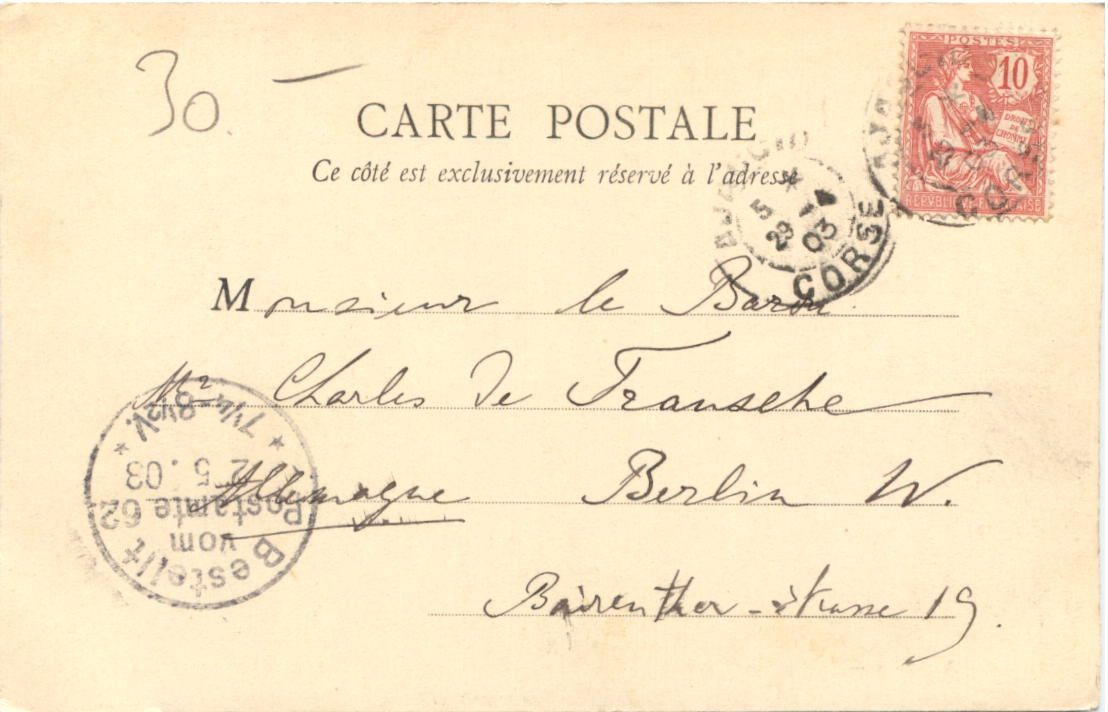 30. —
POSTES
10
DROITS DE L'HOMME
REPUBLIQUE FRANÇAISE
CARTE POSTALE
Ce côté est exclusivement réservé à l'adresse
AJACCIO
5
29 4
03
CORSE
Monsieur le Baron
Mr Charles de Transehe
Allemagne Berlin W.
Baireuther-strasse 19.
Bestellt
vom
Postamte 62
2. 5. 03
7¼-8½V.